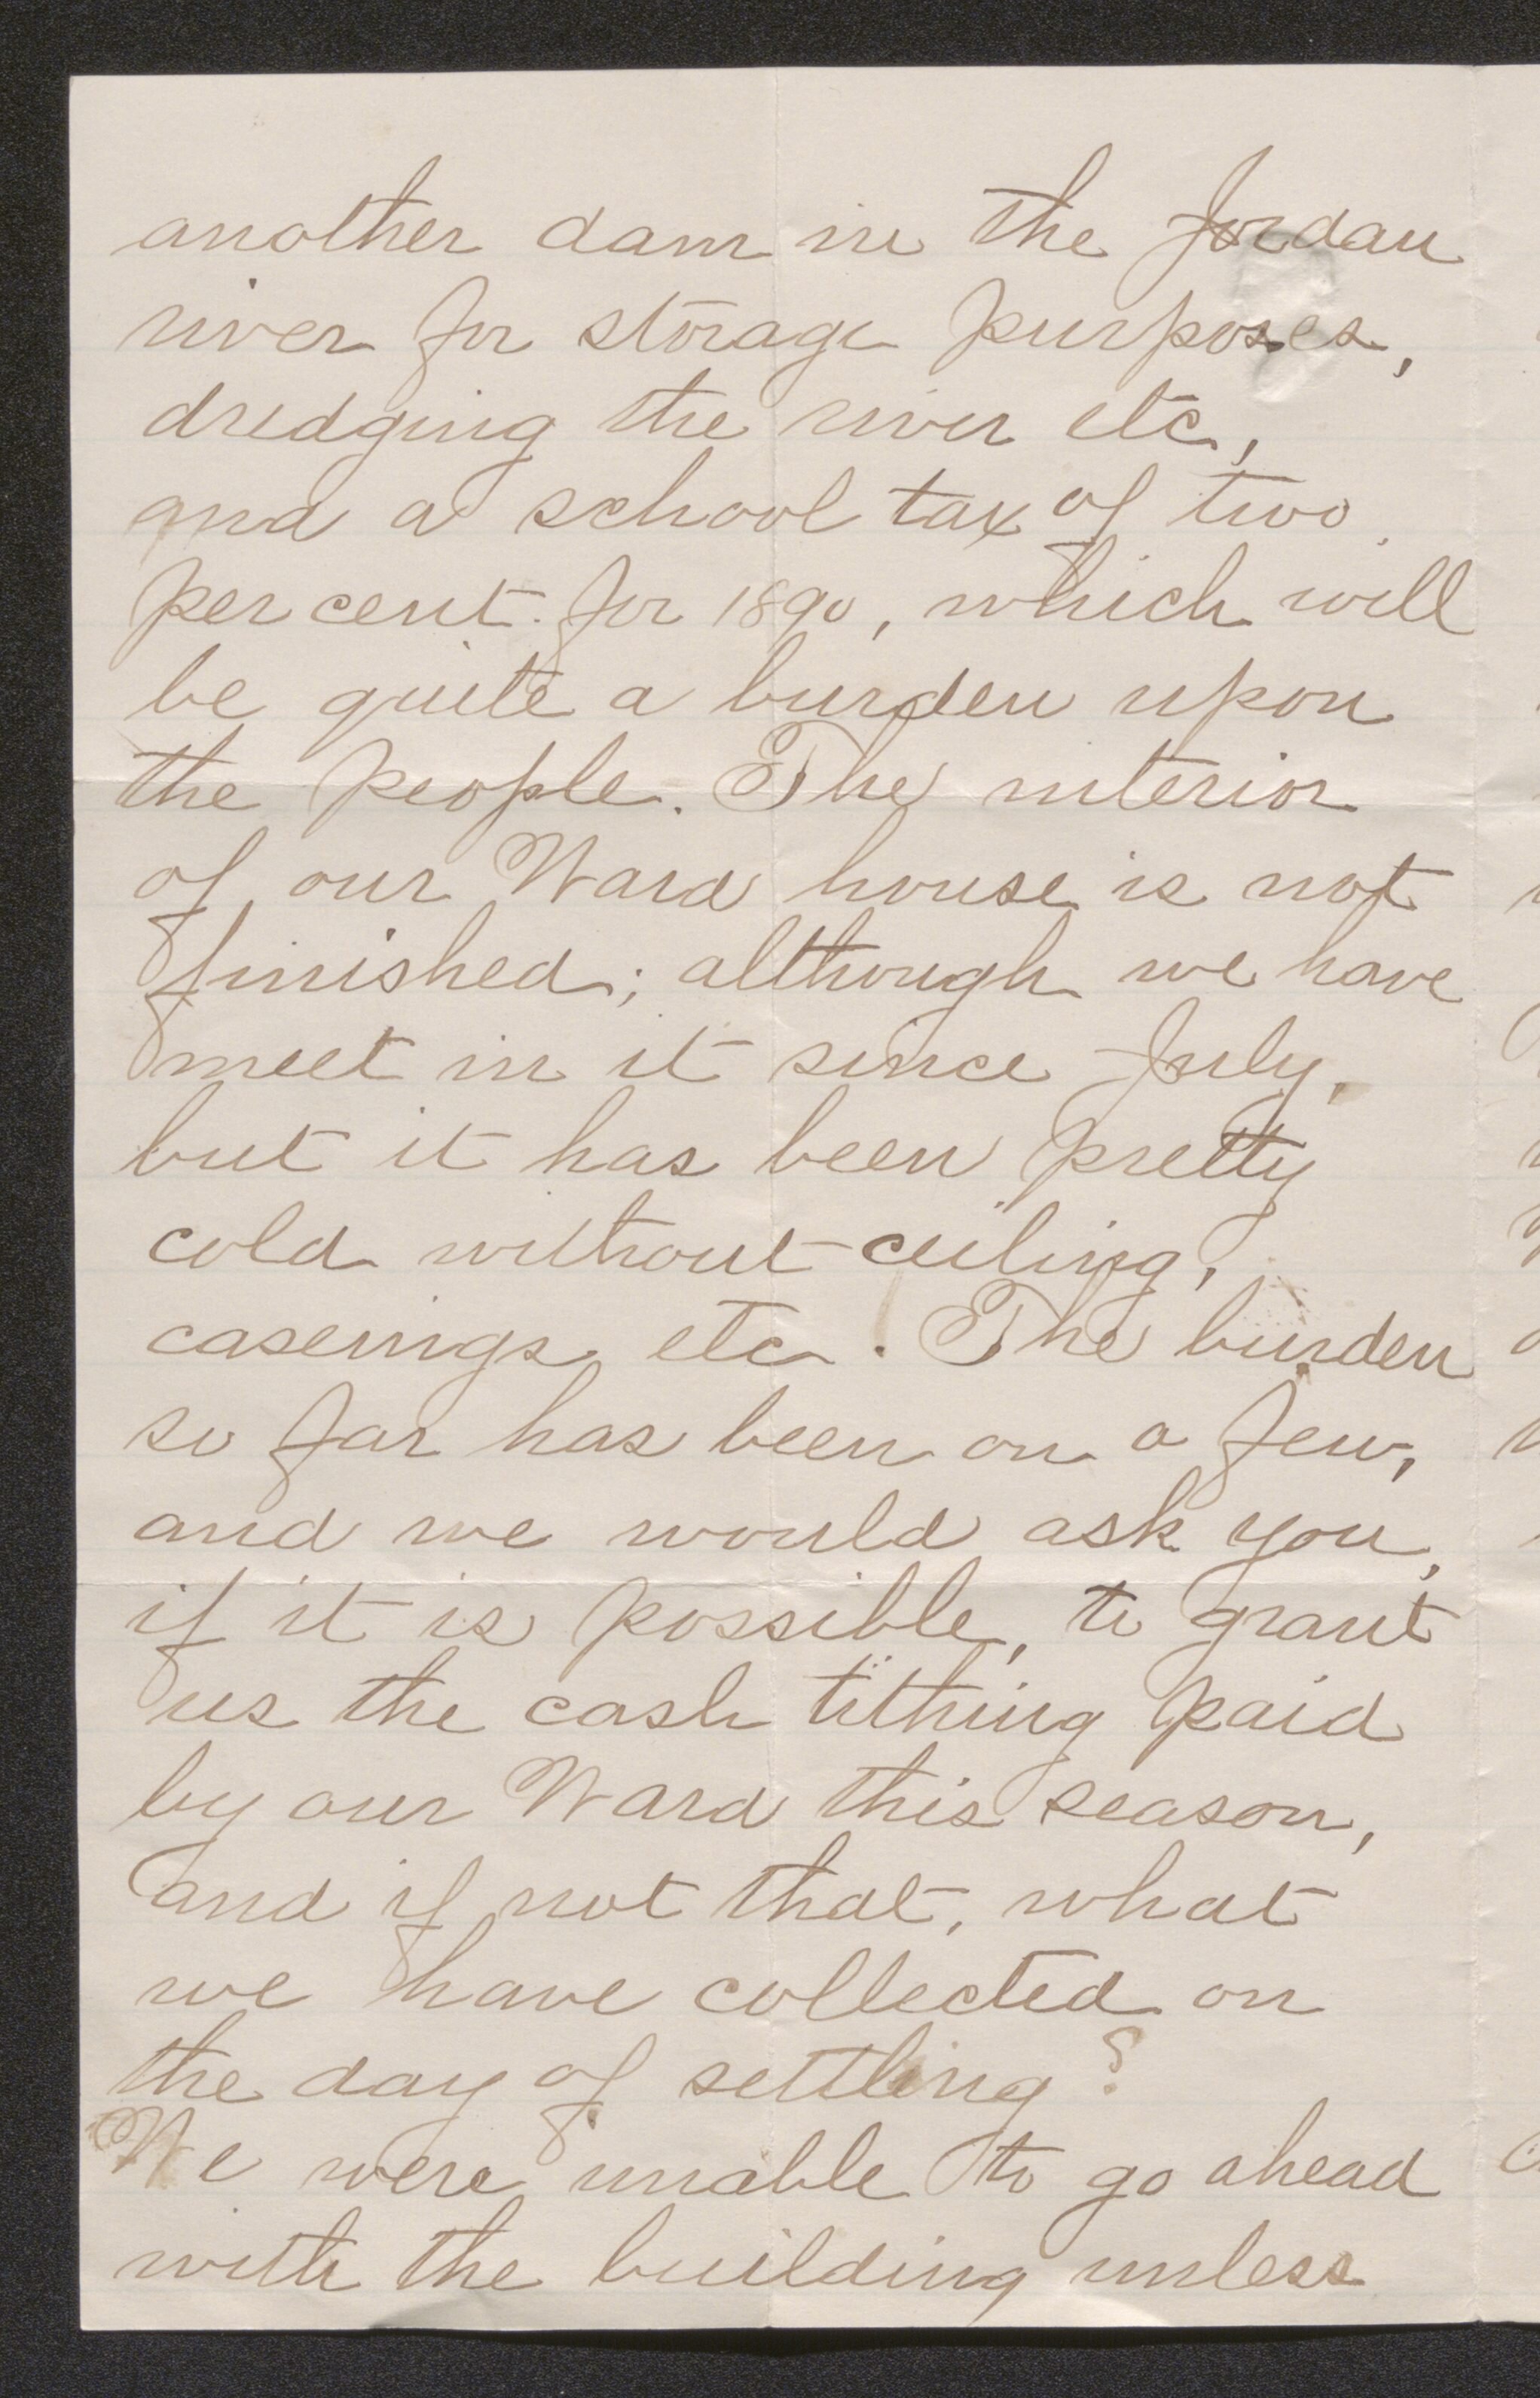 another dam in the Jordan
river for storage purposes,
dredging the river etc,
and a school tax of two
per cent. for 1890, which will
be quite a burden upon
the people. The interior
of our Ward house is not
finished; although we have
meet in it since July,
but it has been pretty
cold without ceiling,
casenings etc. The burden
so far has been on a few,
and we would ask you,
if it is possible, to grant
us the cash tithing paid
by our Ward this season,
and if not that, what
we have collected on
the day of settling?
We were unable to go ahead
with the building unless